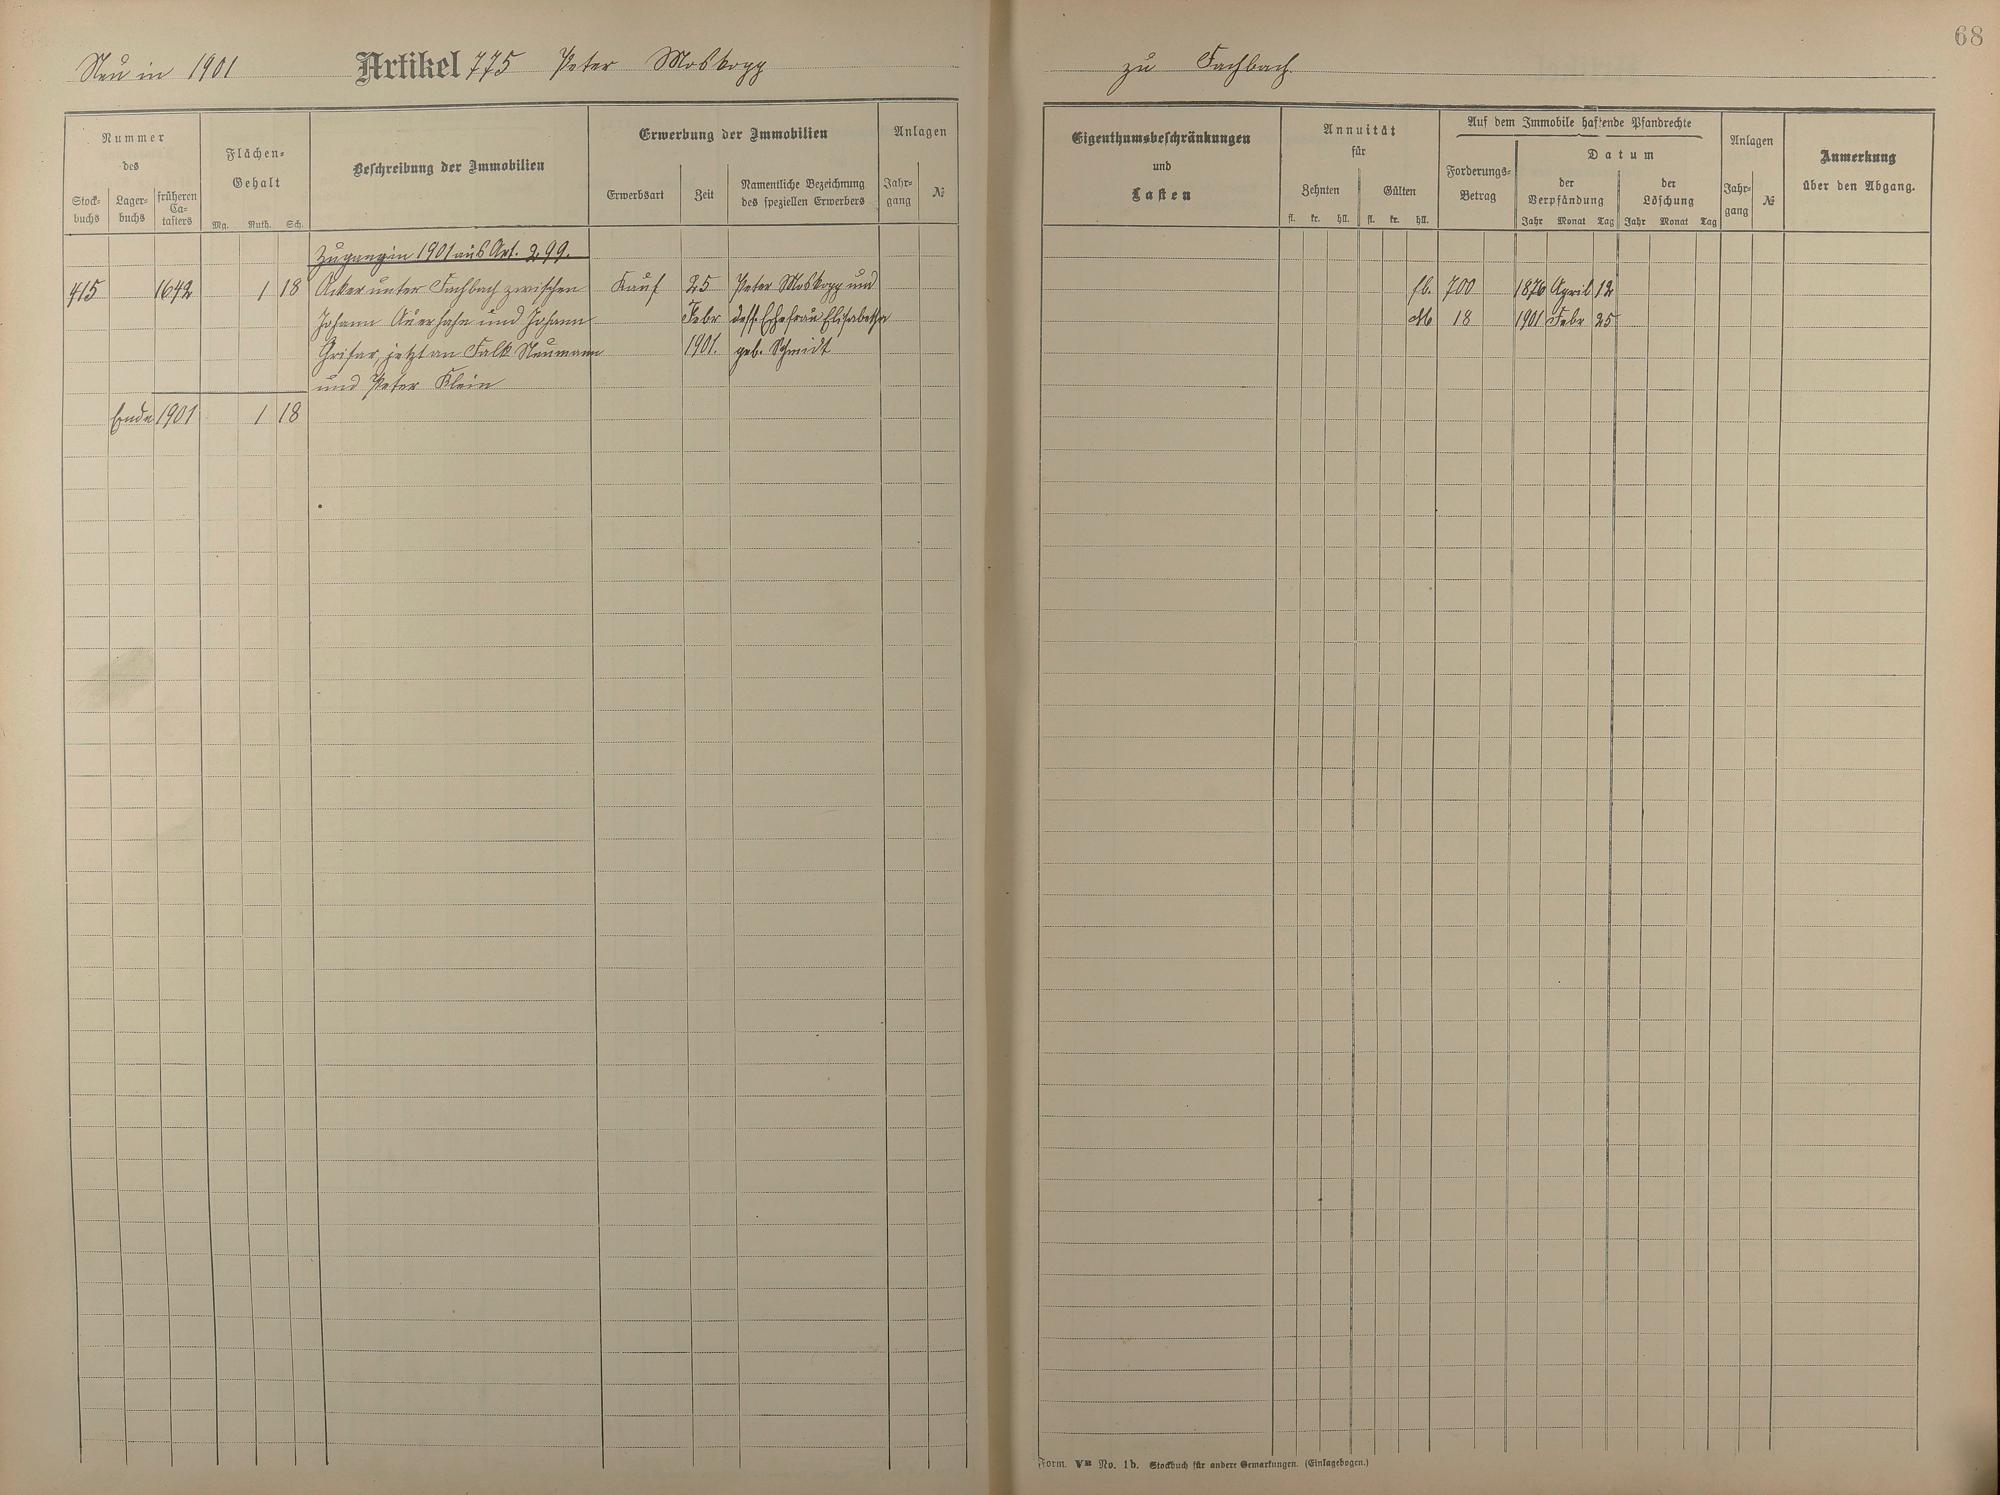 68
Neu in 1901 Artikel 775 Peter Moskopp zu Fachbach
Nummer des
Stock-buchs
Lager-buchs
früheren Ca-tasters
Flächen-Gehalt
Mg. Ruth. Sch.
Beschreibung der Immobilien
Erwerbung der Immobilien
Erwerbsart
Zeit
Namentliche Bezeichnung des speziellen Erwerbers
Anlagen
Jahr-gang
№
Zugang in 1901 aus Art. 299.
415 1642 1 18 Acker unter Fachbach zwischen Kauf 25 Peter Moskopp und
Johann Auerhahn und Johann Febr dess. Ehefrau Elisabetha
Grifar, jetzt an Falk Neumann 1901. geb. Schmidt
und Peter Klein
Ende 1901 1 18
Eigenthumsbeschränkungen
und
Lasten
Annuität
für
Zehnten
Gülten
fl. kr. hll. fl. kr. hll.
Auf dem Immobile haftende Pfandrechte
Forderungs-Betrag
Datum
der Verpfändung
der Löschung
Jahr Monat Tag Jahr Monat Tag
Anlagen
Jahr-gang
№
Anmerkung
über den Abgang.
fl. 700 1876 April 12
M 18 1901 Febr 25
Form. VB No. 1b. Stockbuch für andere Gemarkungen. (Einlagebogen.)